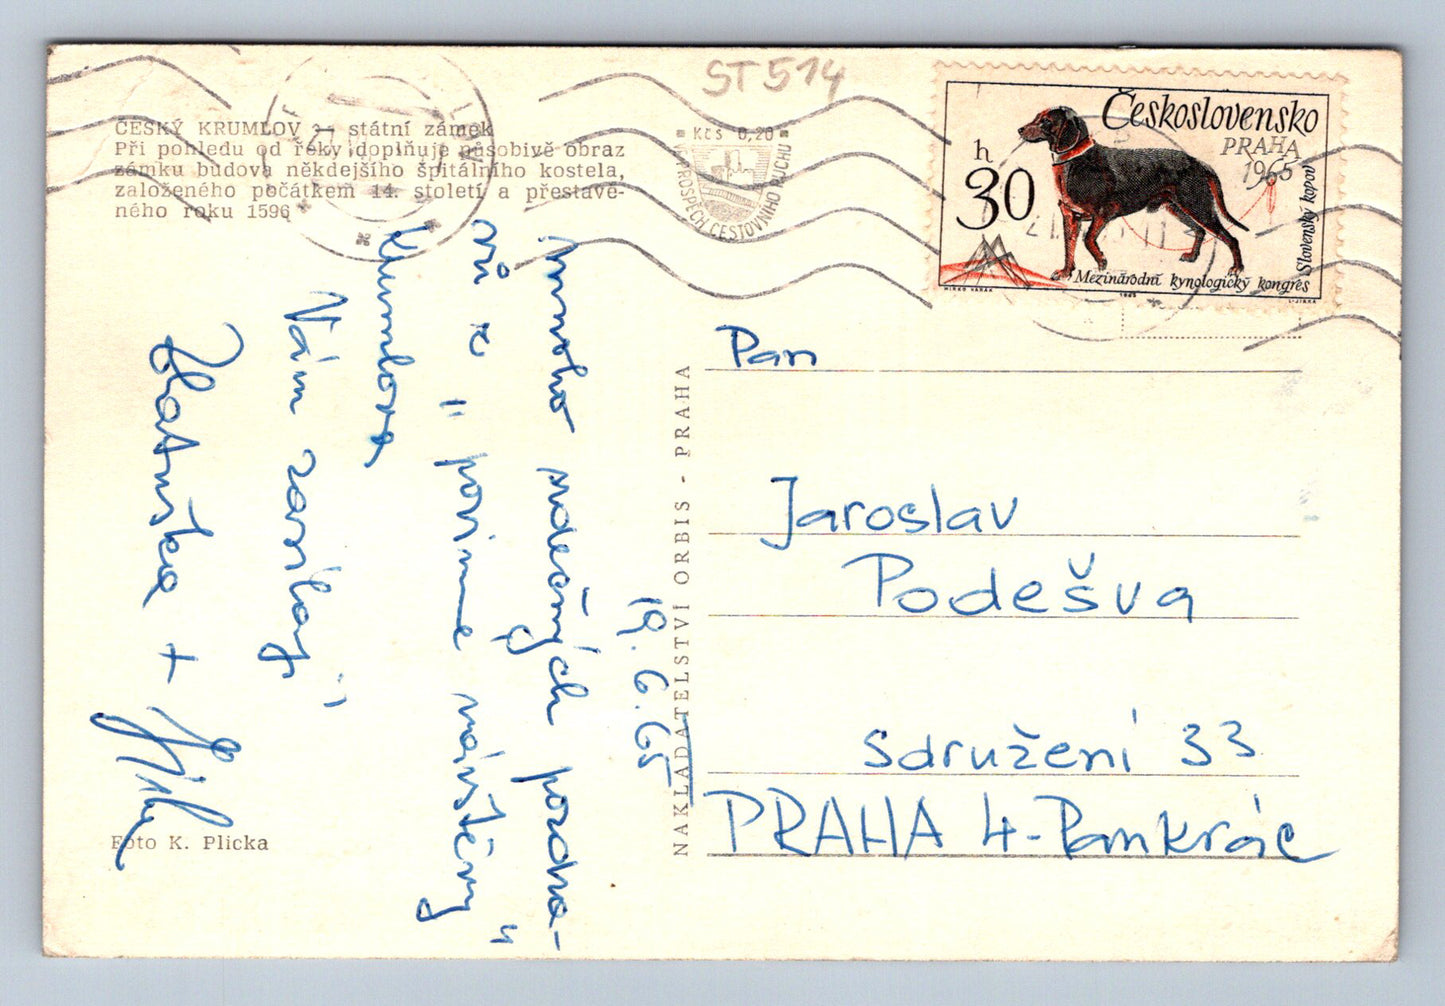 ST 514
ČESKÝ KRUMLOV — státní zámek
Při pohledu od řeky doplňuje působivě obraz
zámku budova někdejšího špitálního kostela,
založeného počátkem 14. století a přestavě-
ného roku 1596
Kčs 0,20
VE PROSPĚCH CESTOVNÍHO RUCHU
Československo
PRAHA
1965
h
30
Slovenský kopov
Mezinárodní kynologický kongres
1965
19. 6. 65
mnoho srdečných pozdra-
vů z " povinné návštěvy "
Krumlova
Vám zasílají
+
Pan
Jaroslav
Podešva
Sdružení 33
PRAHA 4-Pankrác
NAKLADATELSTVÍ ORBIS - PRAHA
Foto K. Plicka